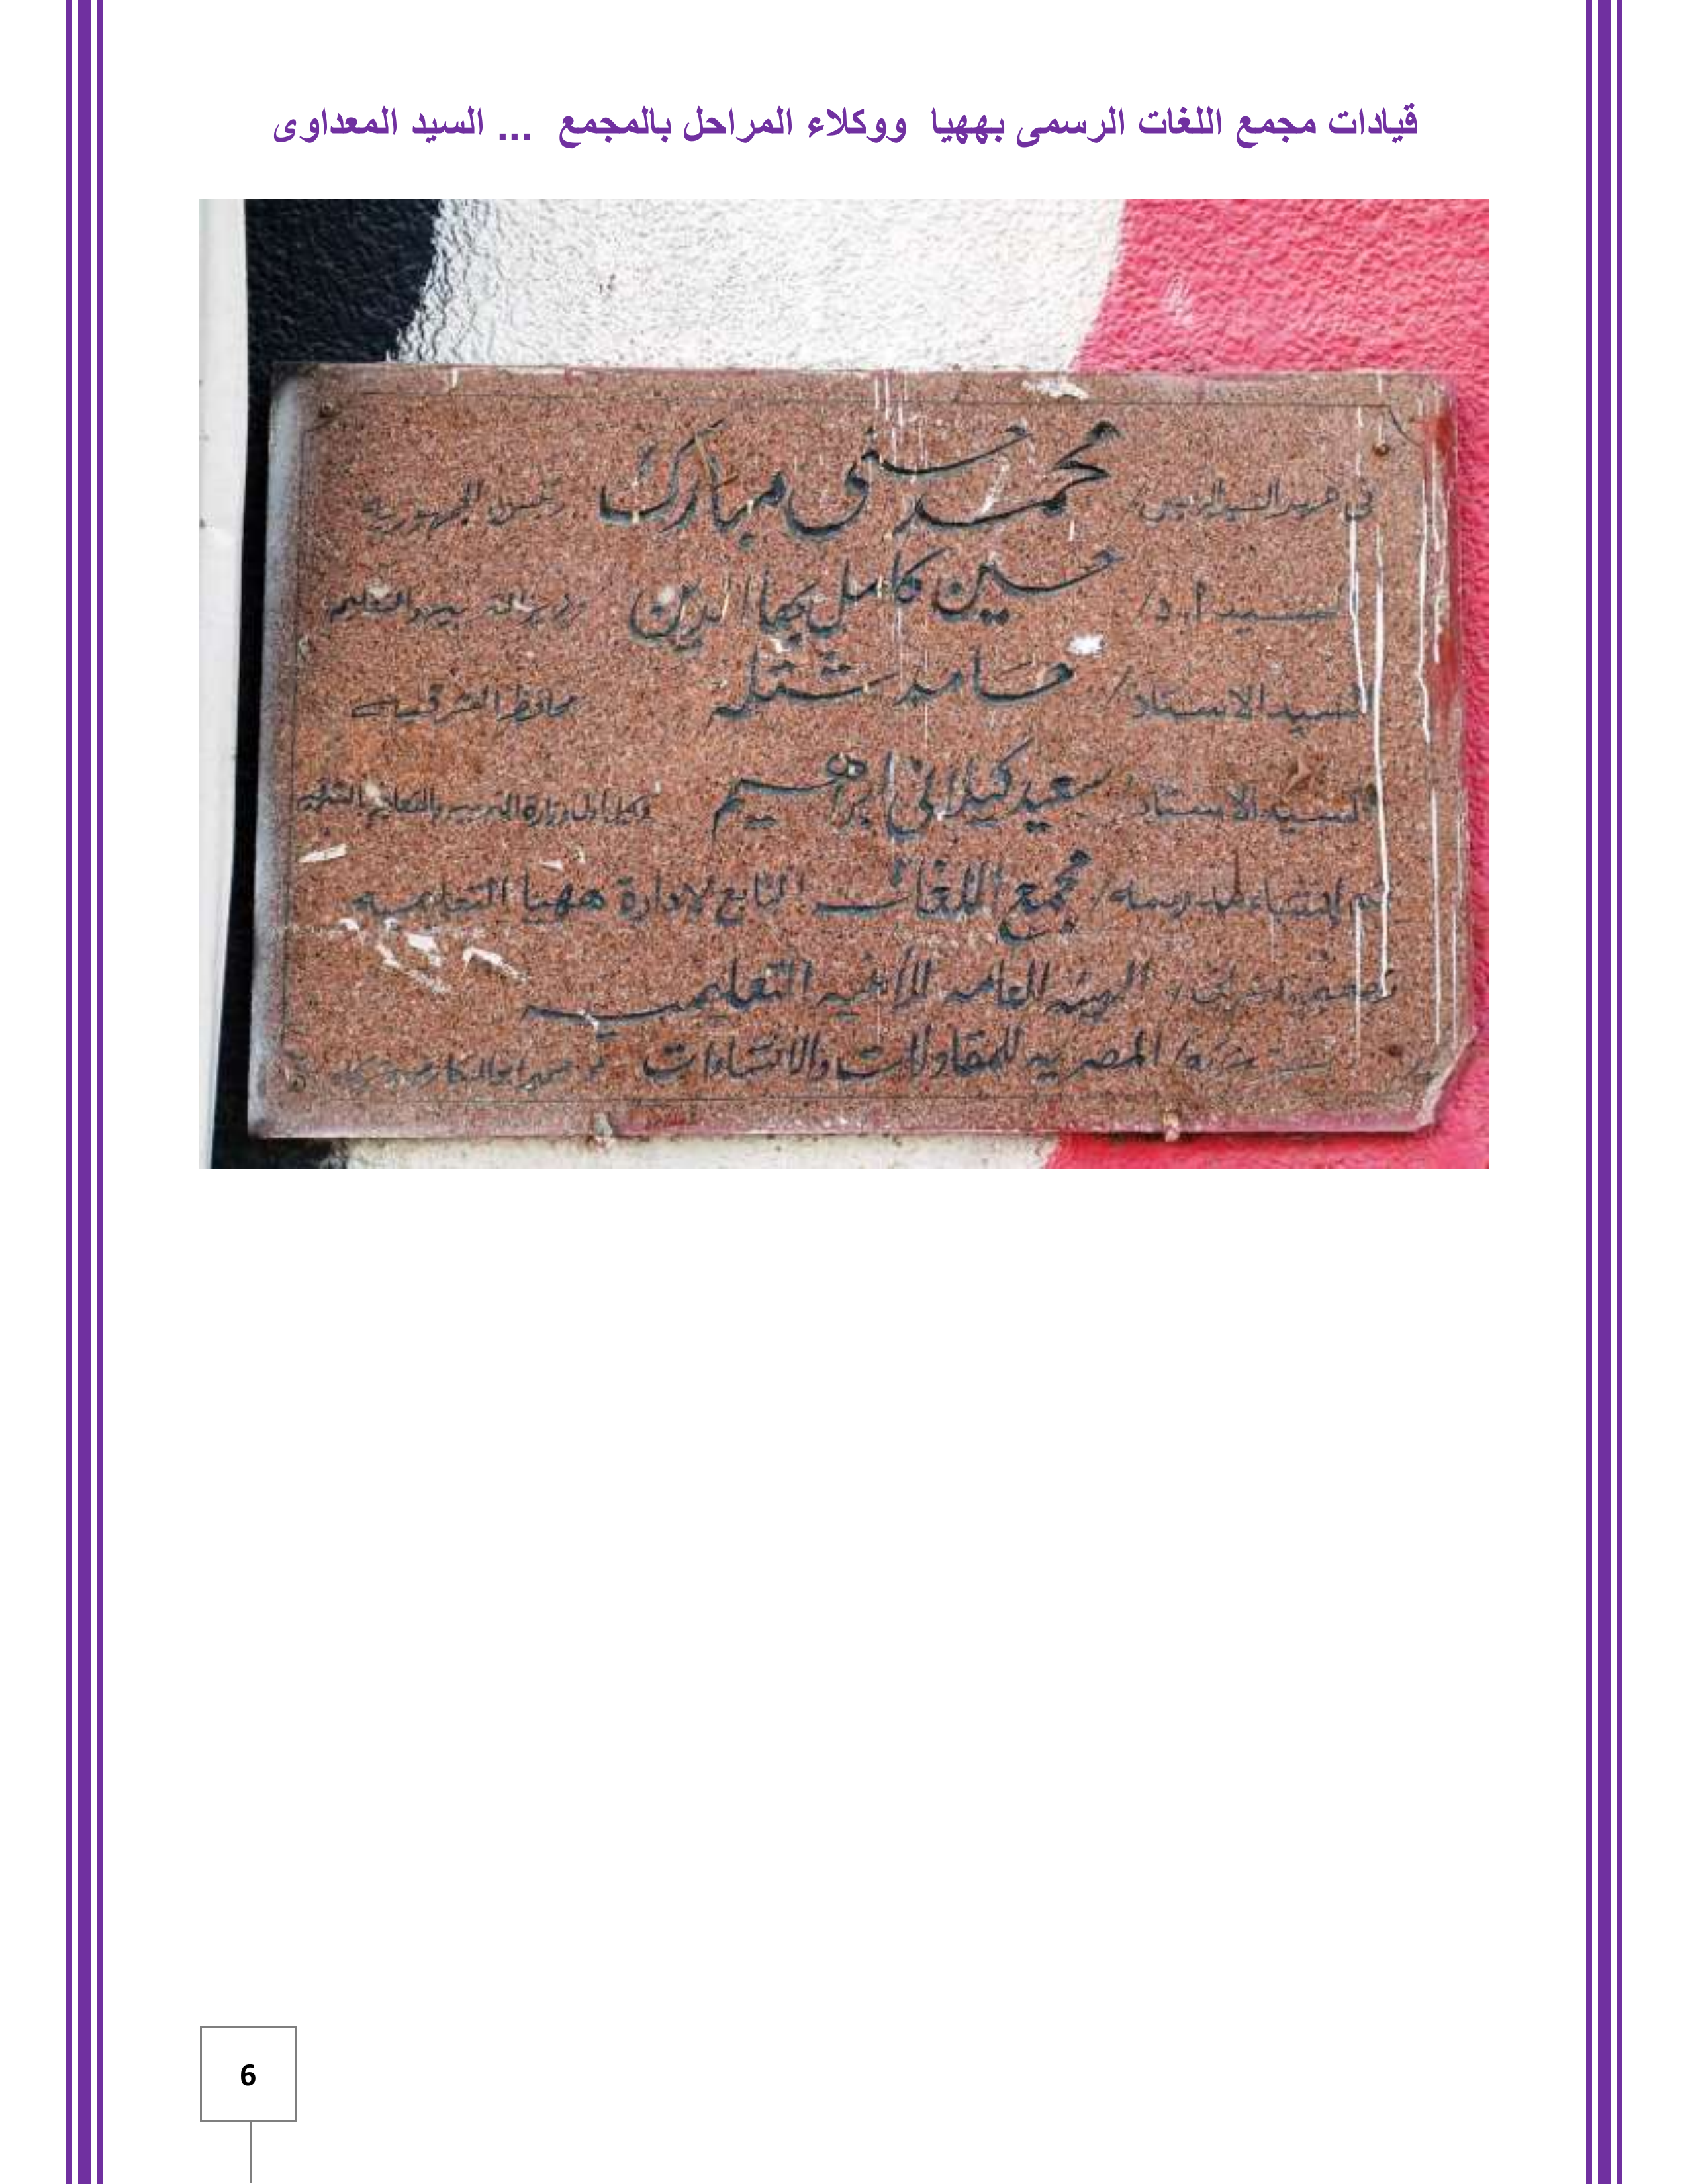 قيادات مجمع اللغات الرسمى بههيا ووكلاء المراحل بالمجمع ... السيد المعداوى
فى عهد السيد الرئيس محمد حسنى مبارك رئيس الجمهوريه
السيد أ.د/ حسين كامل بهاء الدين وزير التربيه والتعليم
السيد الاستاذ/ حامد شتله محافظ الشرقيه
السيد الاستاذ سعيد كيلانى ابراهيم وكيل اول وزارة التربيه والتعليم
تم إنشاء مدرسه/ مجمع اللغات التابع لادارة ههيا التعليميه
الهيئه العامه للأبنيه التعليميه
المصريه للمقاولات والانشاءات
6